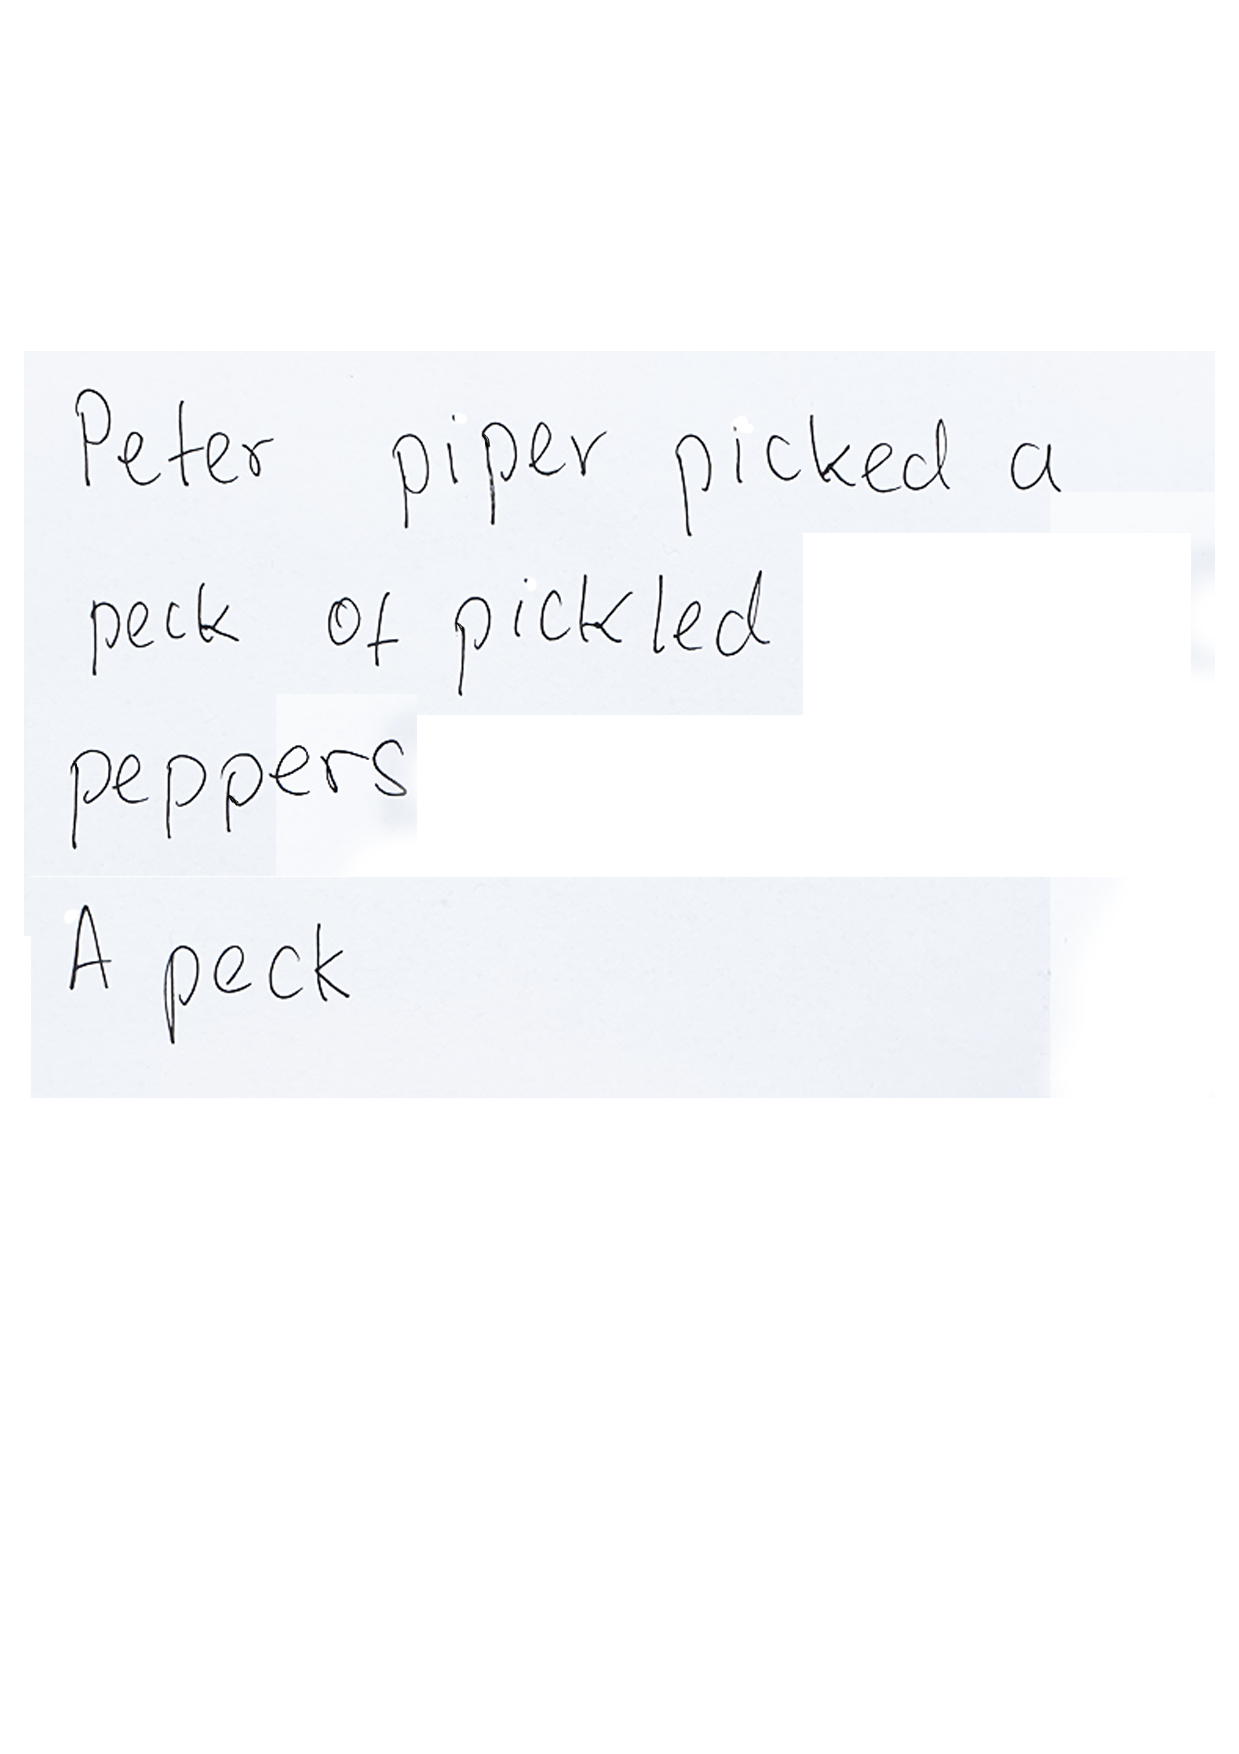 Peter piper picked a
peck of pickled
peppers
A peck